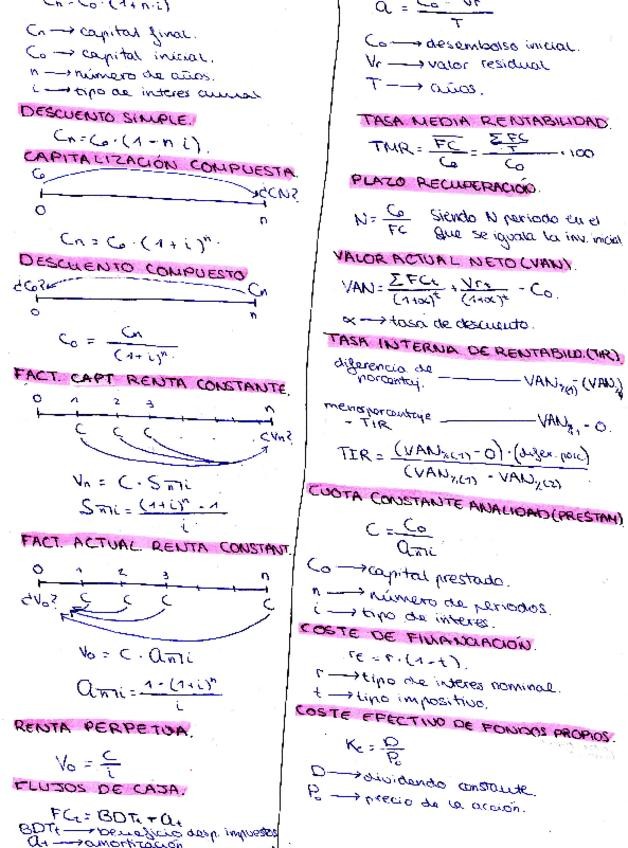 Cn = Co · (1+n·i)
Cn → capital final.
Co → capital inicial.
n → número de años.
i → tipo de interes annual
DESCUENTO SIMPLE.
Cn = Co · (1 - n i).
CAPITALIZACIÓN COMPUESTA.
Co ¿CN?
0 n
Cn = Co · (1 + i)ⁿ.
DESCUENTO COMPUESTO
¿Co? Cn
0 n
Co = Cn / (1 + i)ⁿ.
FACT. CAPT RENTA CONSTANTE.
0 1 2 3 n
C C C ¿Vn?
Vn = C · Sn̅|i
Sn̅|i = (1+i)ⁿ - 1 / i
FACT. ACTUAL RENTA CONSTANT.
0 1 2 3 n
¿Vo? C C C C
Vo = C · an̅|i
an̅|i = 1 - (1+i)ⁿ / i
RENTA PERPETUA.
Vo = C / i
FLUJOS DE CAJA.
FCt = BDTt + at
BDTt → beneficio desp. impuestos
At → amortización
a = Co - Vr / T
Co → desembolso inicial.
Vr → valor residual
T → años.
TASA MEDIA RENTABILIDAD.
TMR = F̅C̅ / Co = (Σ FC / T) / Co · 100
PLAZO RECUPERACION.
N = Co / FC siendo N periodo en el
que se iguala la inv. inicial
VALOR ACTUAL NETO (VAN).
VAN = Σ FCt / (1+α)ᵗ + Vrt / (1+α)ᵗ - Co.
α → tasa de descuento.
TASA INTERNA DE RENTABILID. (TIR)
diferencia de
porcentaj. VAN%(1) - (VAN%
menos porcentaje
- TIR VAN%1 - 0.
TIR = (VAN%(1) - 0) · (difer. porc) / (VAN%(1) - VAN%(2)
CUOTA CONSTANTE ANALIDAD (PRESTAM)
C = Co / an̅|i
Co → capital prestado.
n → número de periodos.
i → tipo de interes.
COSTE DE FINANCIACIÓN.
rE = r · (1 - t).
r → tipo de interes nominal.
t → tipo impositivo.
COSTE EFECTIVO DE FONDOS PROPIOS.
Ke = D / Po
D → dividendo constante.
Po → precio de la acción.